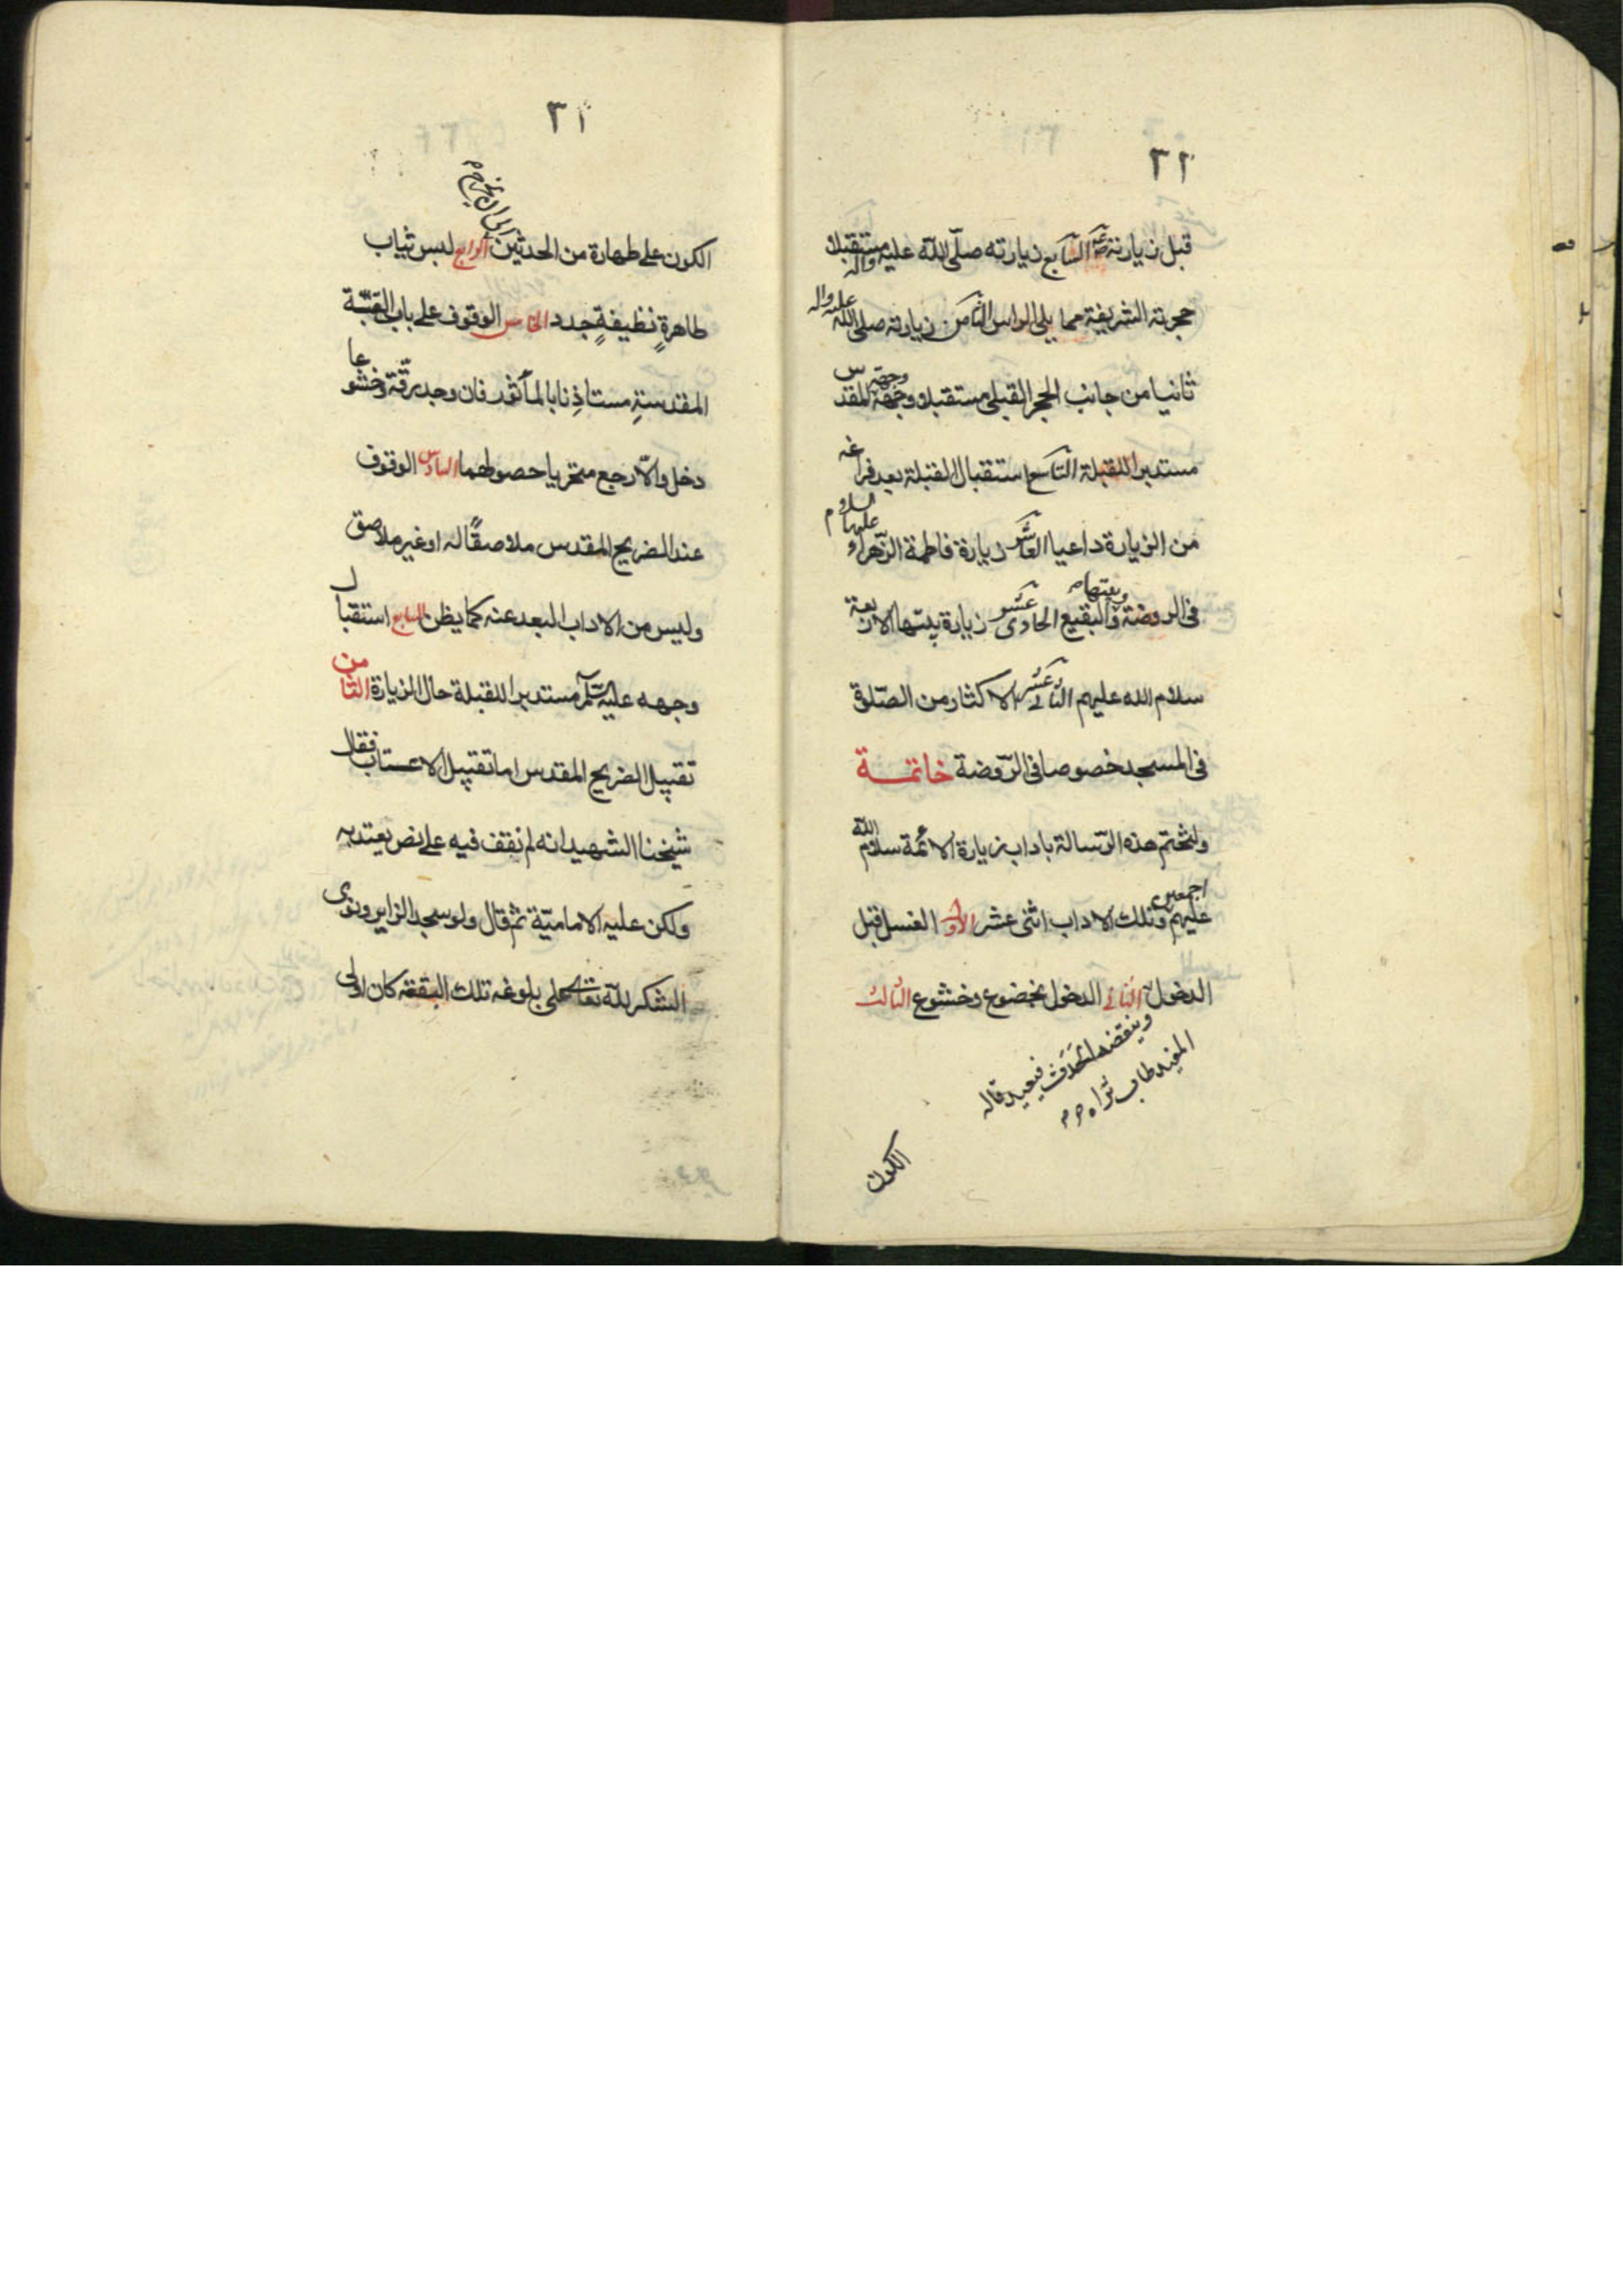 ٢٢
قبل زيارته السابع زيارته صلّى اللّه عليه وآله مستقبلا
حجرته الشريفة مما يلى الراس الثامن زيارته صلى الله عليه واله
ثانيا من جانب الحجر القبلى مستقبلا وجهه المقدس
مستدبرا للقبلة التاسع استقبال القبلة بعد فراغه
من الزيارة داعيا العاشر زيارة فاطمة الزّهراء عليها السلام
فى الروضة وبيتها والبقيع الحادى عشر زيارة بنيها الاربعة
سلام الله عليهم الثانى عشر الاكثار من الصّلوة
فى المسجد خصوصا فى الرّوضة خاتمــة
ولنختم هذه الرّسالة باداب زيارة الائمة سلام اللّه
عليهم اجمعين وتلك الاداب اثنى عشر الأول الغسل قبل
الدخول الثانى الدخول بخضوع وخشوع الثالث
وينقضه الحَدَث فيعيد قاله
المفيد طاب ثراه
الكون
٢١
الكون على طهارة من الحدثين الرابع لبس ثياب
طاهرةٍ نظيفةٍ جدد الخامس الوقوف على باب القبّة
المقدسةِ مستاذِنا بالمأثور فان وجد رقّة وخشوعا
دخل والّا رجع متحريا حصولهما السادس الوقوف
عند الضريح المقدس ملاصقًا له او غير ملاصق
وليس من الاداب البعد عنه كما يظن السابع استقبال
وجهه عليه السّلم مستدبرا للقبلة حال الزيارة الثامن
تقبيل الضريح المقدس اما تقبيل الاعتاب فقال
شيخنا الشهيد انه لم نقف فيه على نص يعتد به
ولكن عليه الاماميّة ثم قال ولو سجد الزاير ونوى
الشكر للّه تعالى على بلوغه تلك البقعة كان اولى